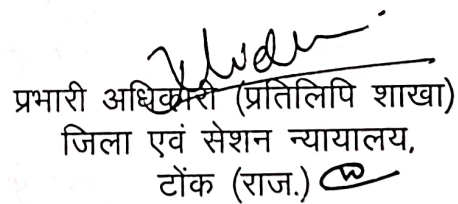 प्रभारी अधिकारी (प्रतिलिपि शाखा)
जिला एवं सेशन न्यायालय,
टोंक (राज.)